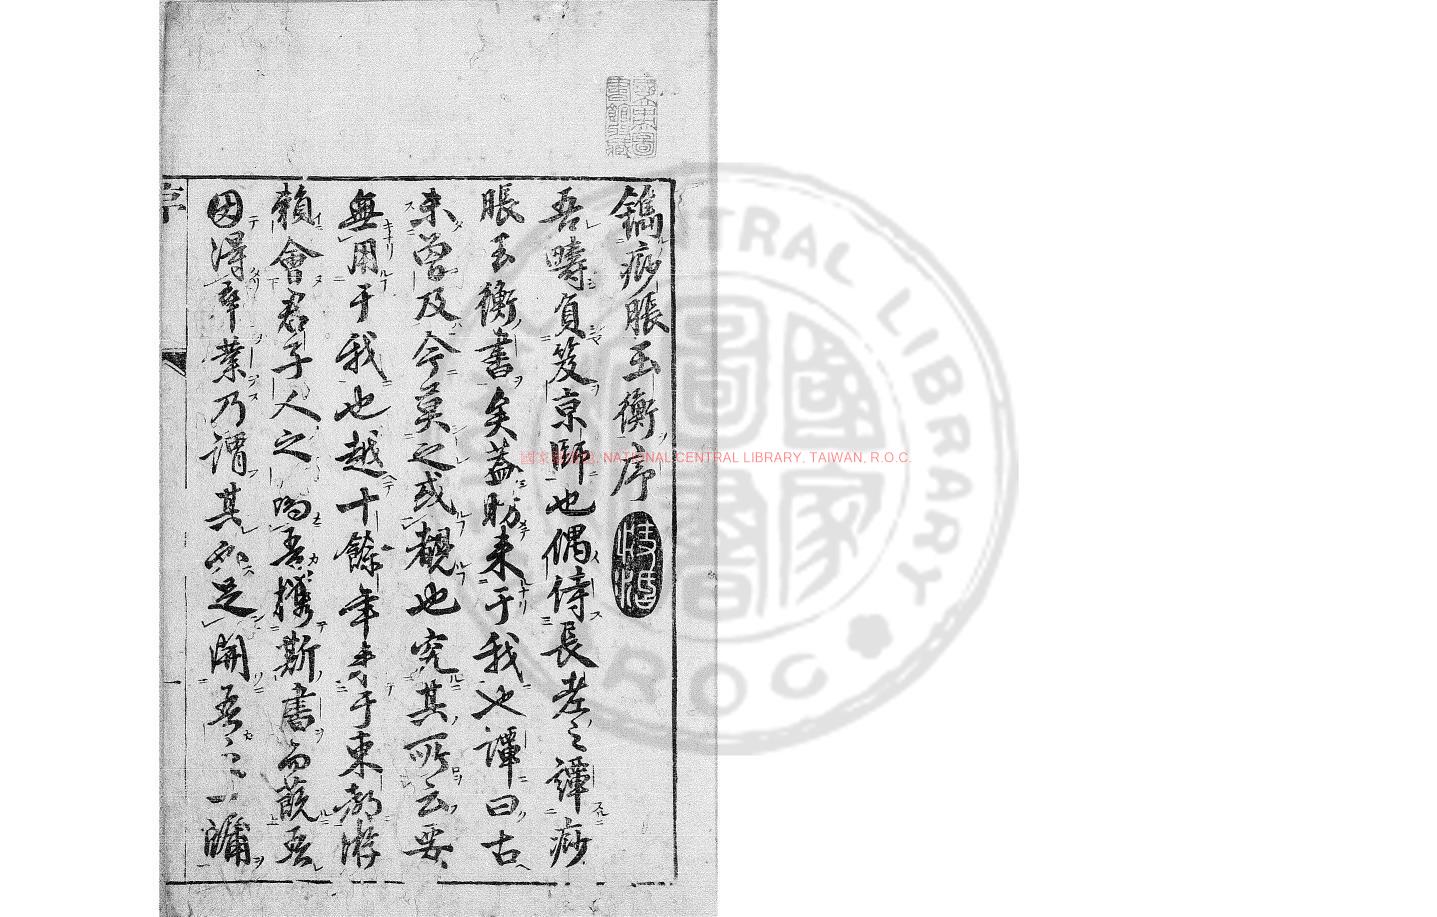 鐫痧脹玉衡序
吾疇負笈京師也偶侍長老之譚痧
脹玉衡書矣蓋昉來于我也譚曰古
未曾及今莫之或覩也究其所云要
無用于我也越十餘年于東都游
賴會君子人之吾攜斯書而蔇吾
因得卒業乃謂其足開吾之一牖
序
國家圖書館 NATIONAL CENTRAL LIBRARY, TAIWAN, R.O.C.
CENTRAL LIBRARY
ROC